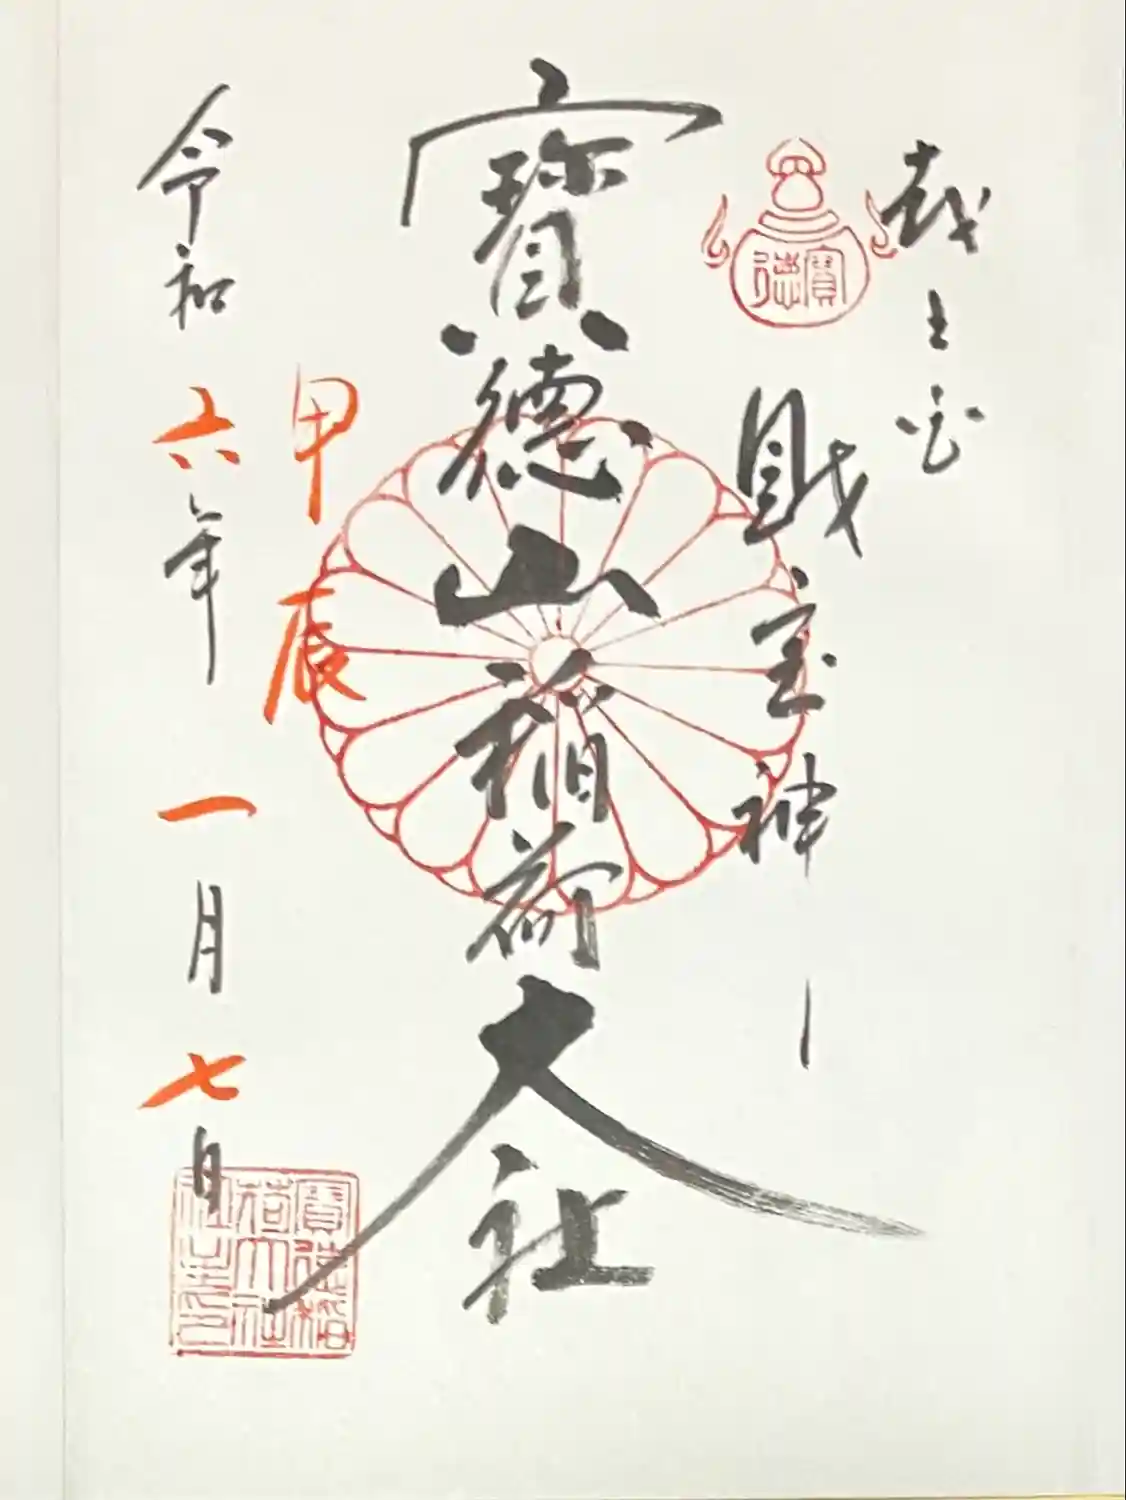 寶徳
財宝神
寶德山稲荷大社
甲辰
令和六年一月七日
寶徳稲荷大社之印